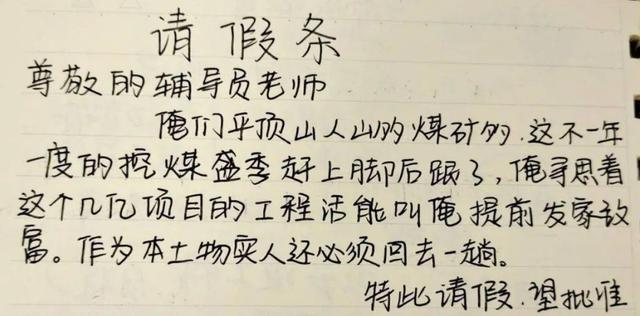 请假条
尊敬的辅导员老师
俺们平顶山人山的煤矿多.这不一年
一度的挖煤盛季赶上脚后跟了,俺寻思着
这个几亿项目的工程活能叫俺提前发家致
富。作为本土物实人还必须回去一趟。
特此请假.望批准